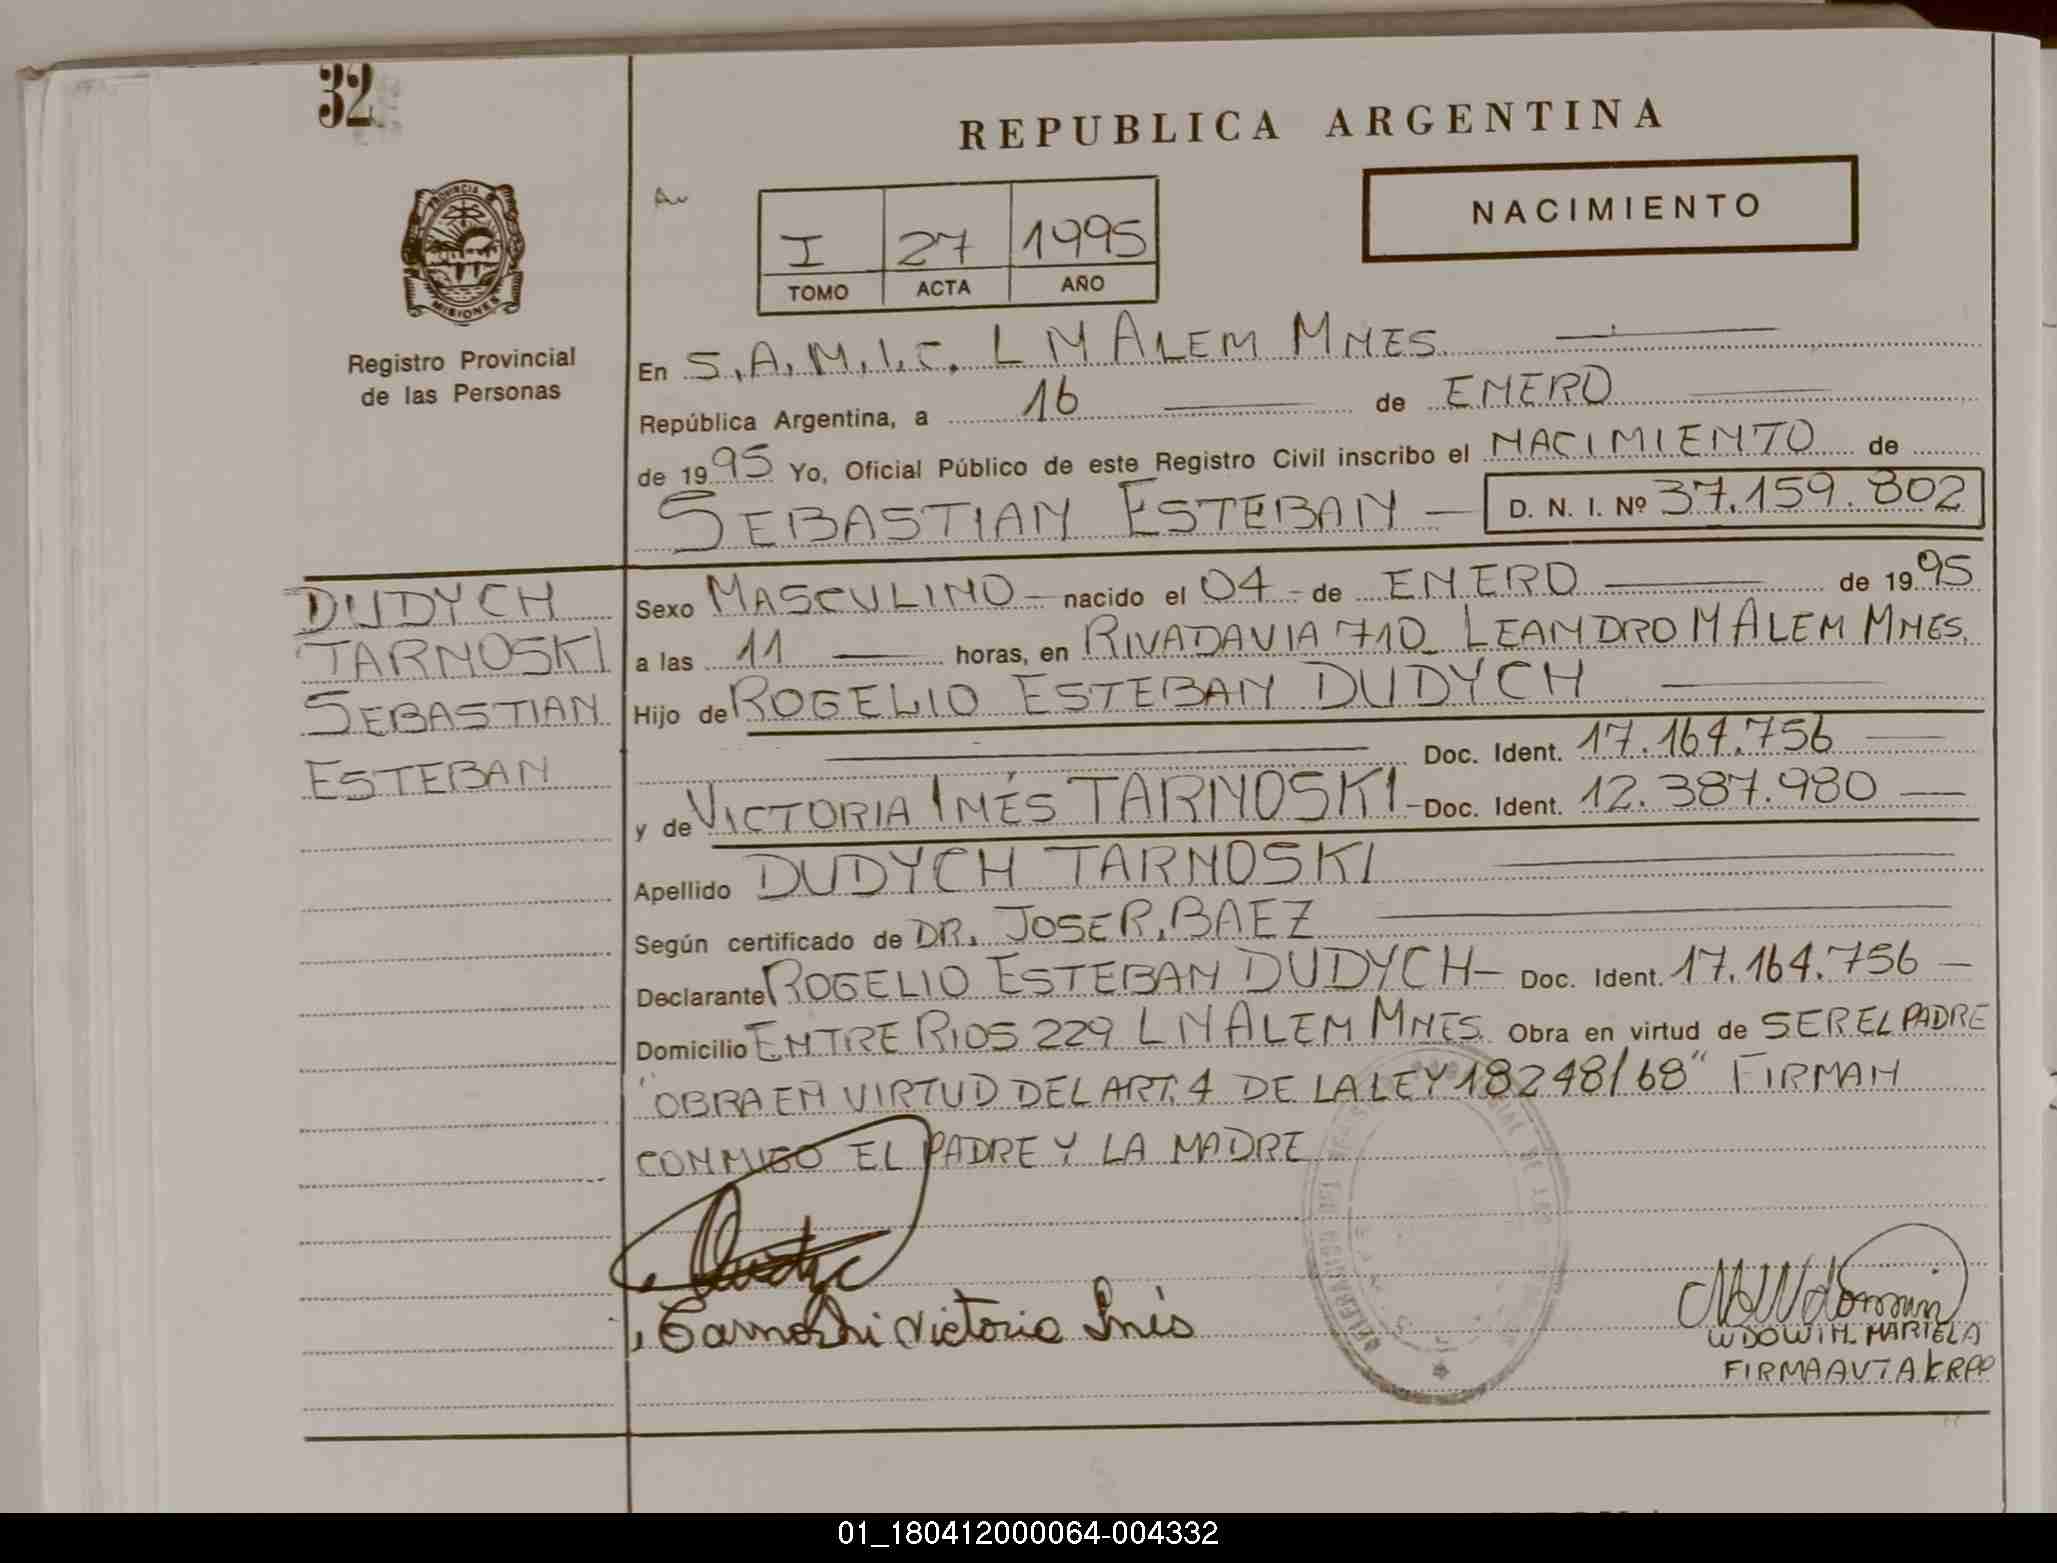 32
REPUBLICA ARGENTINA
NACIMIENTO
PROVINCIA
MISIONES
I 27 1995
TOMO ACTA AÑO
Registro Provincial
de las Personas
En S.A.M.I.C. L N ALEM MNES.
República Argentina, a 16 de ENERO
de 1995 Yo, Oficial Público de este Registro Civil inscribo el NACIMIENTO de
SEBASTIAN ESTEBAN — D. N. I. Nº 37.159.802
DUDYCH
TARNOSKI
SEBASTIAN
ESTEBAN
Sexo MASCULINO — nacido el 04 - de ENERO de 1995
a las 11 horas, en RIVADAVIA 710 LEANDRO N ALEM MNES.
Hijo de ROGELIO ESTEBAN DUDYCH
Doc. Ident. 17.164.756
y de VICTORIA INÉS TARNOSKI - Doc. Ident. 12.387.980
Apellido DUDYCH TARNOSKI
Según certificado de DR. JOSE R. BAEZ
Declarante ROGELIO ESTEBAN DUDYCH — Doc. Ident. 17.164.756 —
Domicilio ENTRE RIOS 229 L N ALEM MNES. Obra en virtud de SER EL PADRE
"OBRA EN VIRTUD DEL ART. 4 DE LA LEY 18248/68" FIRMAN
CONMIGO EL PADRE Y LA MADRE
Tarnoski Victoria Inés
WDOWIN MARIELA
01_180412000064-004332